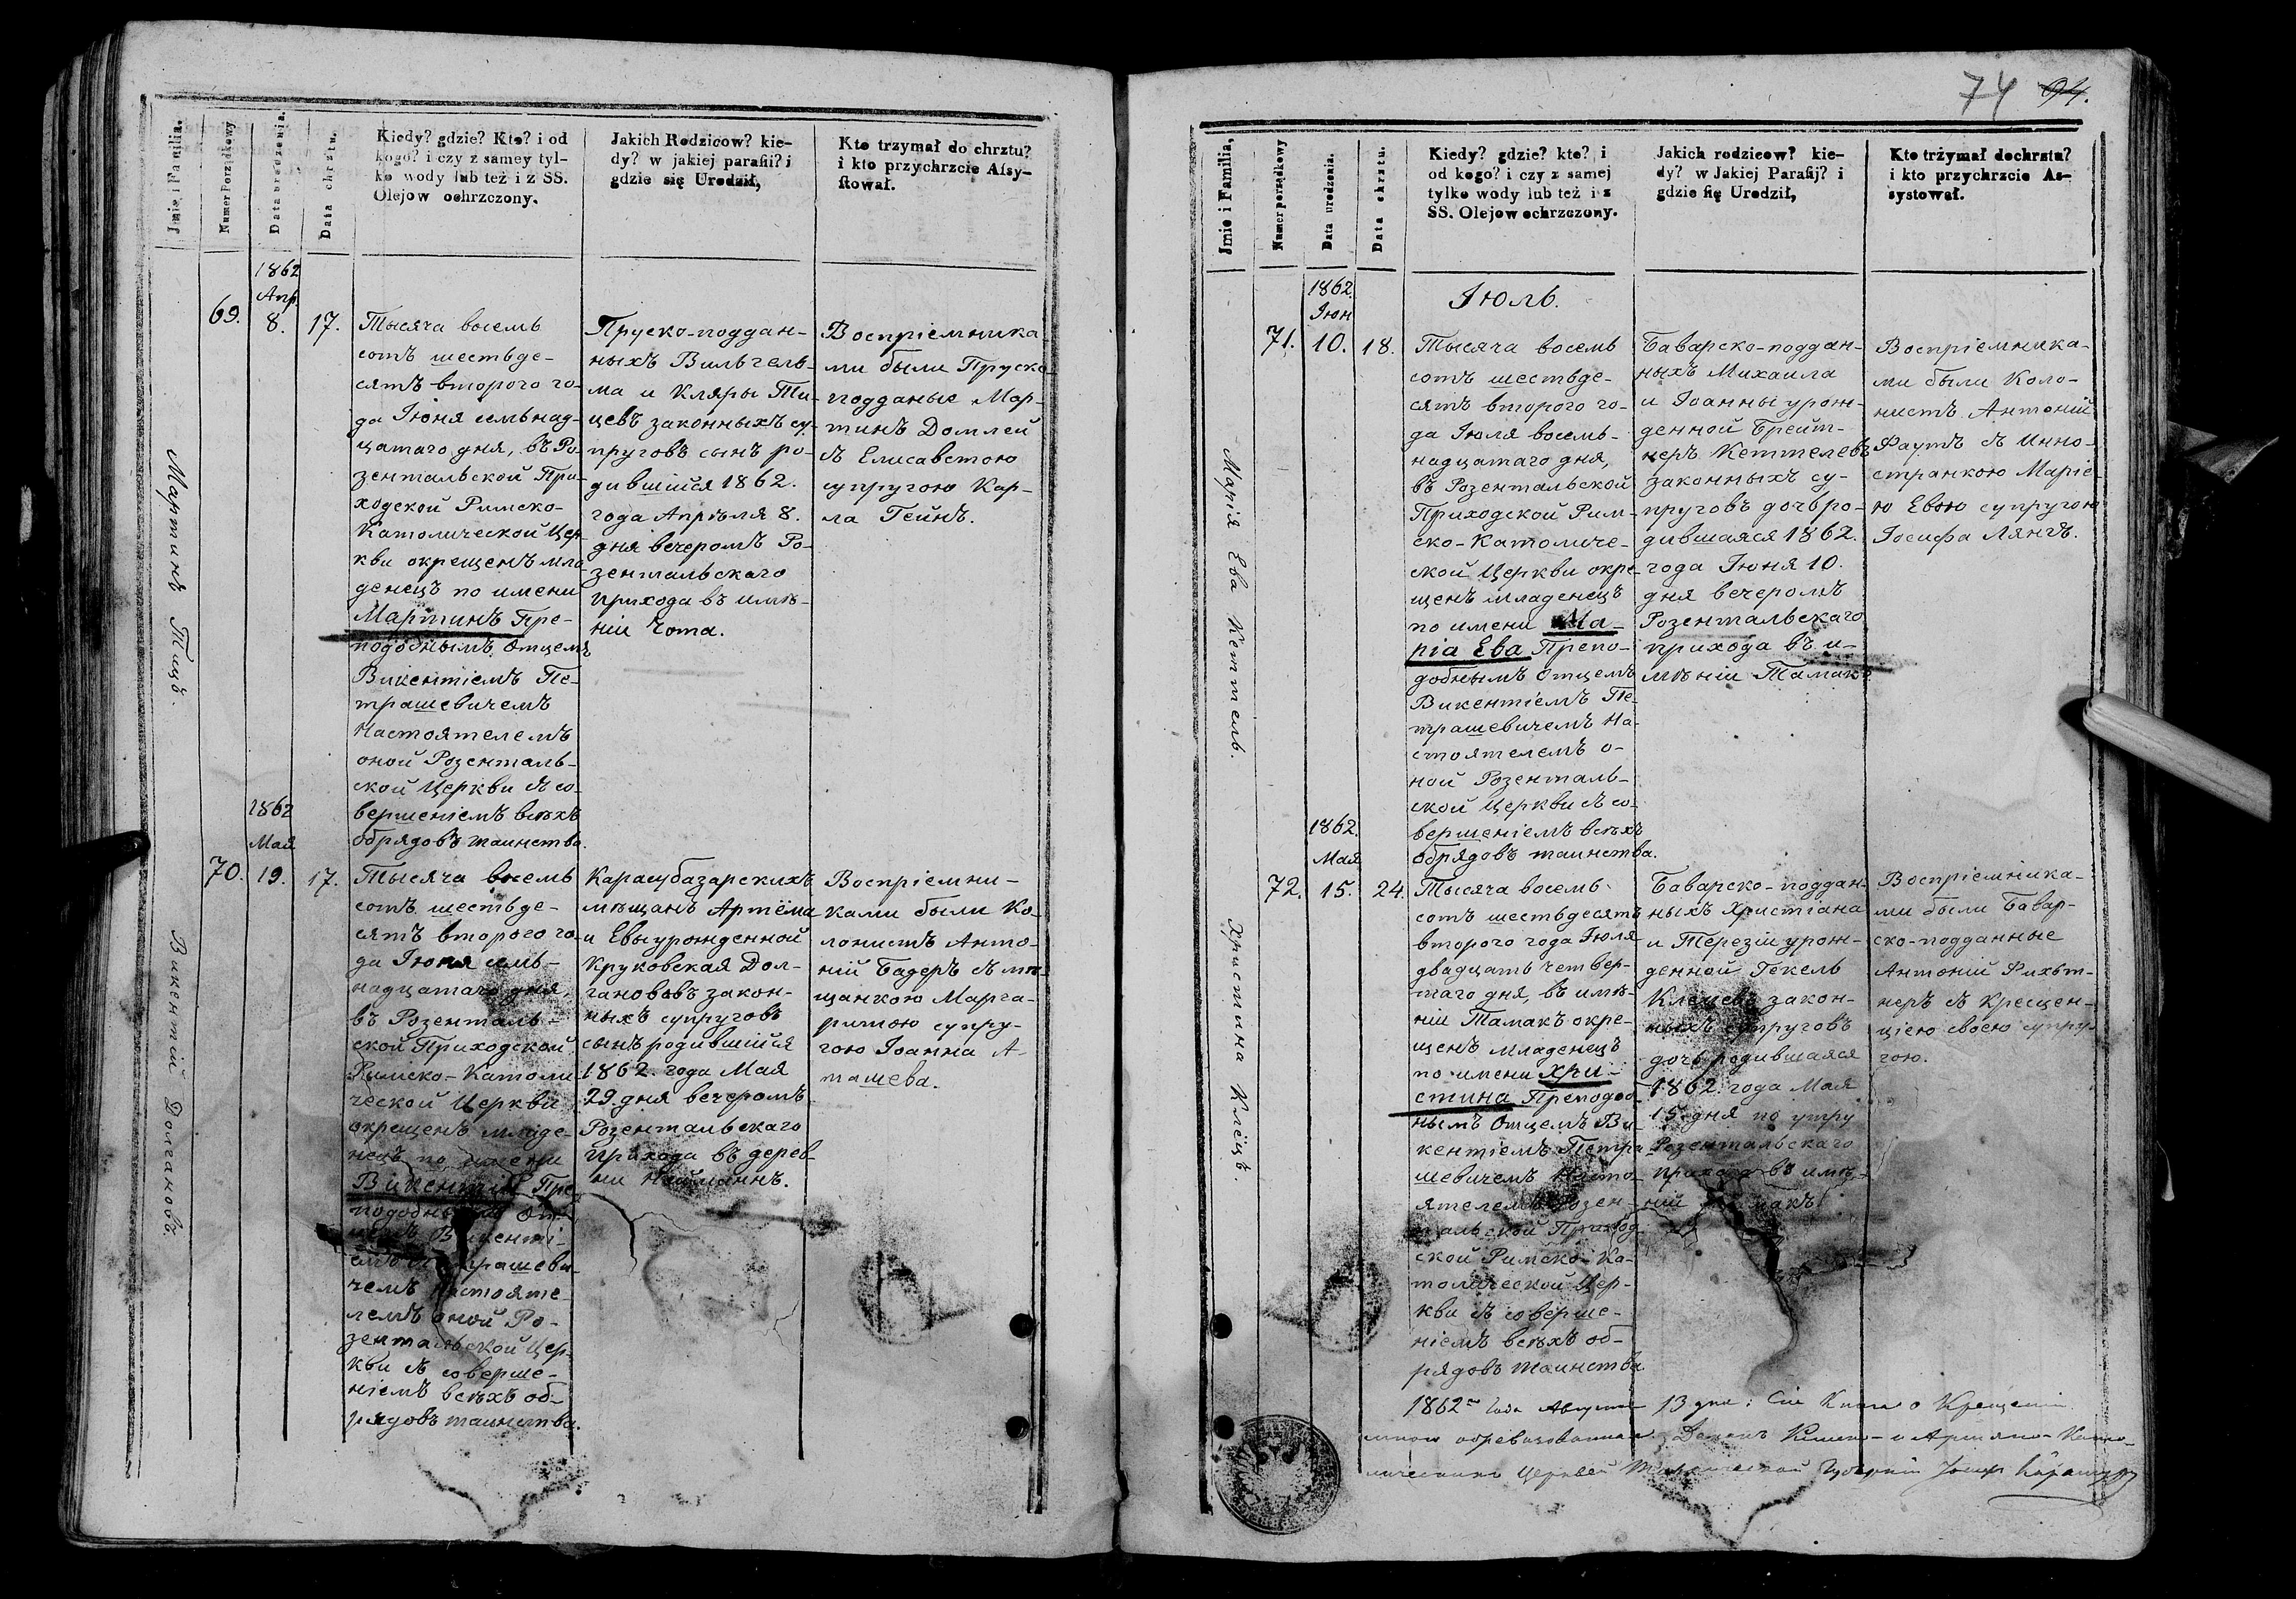 74 94.
Jmie i Familia.
Numer Porządkowy
Data urodzenia.
Data chrztu.
Kiedy? gdzie? Kto? i od
kogo? i czy z samey tyl-
ko wody lub też i z SS.
Olejow ochrzczony.
Jakich Rodzicow? kie-
dy? w jakiej parafii? i
gdzie się Urodził,
Kto trzymał do chrztu?
i kto przychrzcie Afsy-
stował.
Мартинъ Тицъ.
69.
1862
Апр.
8.
17.
Тысяча восемь
сотъ шестьде-
сятъ втораго го-
да Іюня семьнад-
цатаго дня, въ Ро-
зентальской При-
ходской Римско-
Католической Цер-
кви окрещенъ мла-
денецъ по имени
Мартинъ Пре-
подобнымъ Отцемъ
Викентіемъ Пе-
трашевичемъ
Настоятелемъ
оной Розенталь-
ской Церкви съ со-
вершеніемъ всѣхъ
обрядовъ таинства.
Пруско-поддан-
ныхъ Вильгель-
ма и Кляры Ти-
цевъ законныхъ су-
пруговъ сынъ ро-
дившійся 1862.
года Апрѣля 8.
дня вечеромъ Ро-
зентальскаго
прихода въ имѣ-
ніи Чота.
Воспріемника
ми были Пруско
подданые Мар-
тинъ Домлей
съ Елисаветою
супругою Кар-
ла Гейнъ.
Викентій Долгановъ.
70.
1862
Мая
19.
17.
Тысяча восемь
сотъ шестьде-
сятъ втораго го-
да Іюня семь-
надцатаго дня,
въ Розенталь-
ской Приходской
Римско-Католи-
ческой Церкви
окрещенъ младе-
нецъ по имени
Викентій Пре-
подобнымъ От-
цемъ Викенті-
емъ Петрашеви-
чемъ Настояте-
лемъ оной Ро-
зентальской Цер-
кви съ соверше-
ніемъ всѣхъ об-
рядовъ таинства.
Карасубазарскихъ
мѣщанъ Артёма
и Евы урожденной
Круковская Дол-
гановъ закон-
ныхъ супруговъ
сынъ родившійся
1862. года Мая
29. дня вечеромъ
Розентальскаго
прихода въ дерев-
ни Найманъ.
Воспріемни-
ками были Ко-
лонистъ Анто-
ній Бадеръ съ мѣ-
щанкою Марга-
ритою супру-
гою Іоанна А-
ташева.
Jmie i Familia,
Numer porządkowy
Data urodzenia.
Data chrztu.
Kiedy? gdzie? kto? i
od kogo? i czy z samej
tylko wody lub też i z
SS. Olejow ochrzczony.
Jakich rodzicow? kie-
dy? w Jakiej Parafij? i
gdzie się Urodził,
Kto trzymał dochrztu?
i kto przychrzcie As-
systował.
Іюль.
Марія Ева Кеттель.
71.
1862.
Іюн
10.
18.
Тысяча восемь
сотъ шестьде-
сятъ втораго го-
да Іюля восемь-
надцатаго дня,
въ Розентальской
Приходской Рим-
ско-Католиче-
ской Церкви окре-
щенъ младенецъ
по имени Ма-
рія Ева Препо-
добнымъ Отцемъ
Викентіемъ Пе-
трашевичемъ На-
стоятелемъ о-
ной Розенталь-
ской Церкви съ со-
вершеніемъ всѣхъ
обрядовъ таинства.
Баварско-поддан-
ныхъ Михаила
и Іоанны урож-
денной Брейт-
неръ Кеттелевъ
законныхъ су-
пруговъ дочь ро-
дившаяся 1862.
года Іюня 10.
дня вечеромъ
Розентальскаго
прихода въ и-
мѣніи Тамакъ.
Воспріемника-
ми были Коло-
нистъ Антоній
Фаутъ съ Инно-
странкою Маріе-
ю Евою супругою
Іосифа Лянгъ.
Христина Клёцъ.
72.
1862.
Мая
15.
24.
Тысяча восемь
сотъ шестьдесятъ
втораго года Іюля
двадцать четвер-
таго дня, въ имѣ-
ніи Тамакъ окре-
щенъ младенецъ
по имени Хри-
стина Преподоб-
нымъ Отцемъ Ви-
кентіемъ Петра-
шевичемъ Насто-
ятелемъ Розен-
тальской Приход-
ской Римско-Ка-
толической Цер-
кви съ соверше-
ніемъ всѣхъ об-
рядовъ таинства
Баварско-поддан-
ныхъ Христіана
и Терезіи урож-
денной Гекель
Клецевъ закон-
ныхъ супруговъ
дочь родившаяся
1862. года Мая
15. дня по утру
Розентальскаго
прихода въ имѣ-
ніи Тамакъ.
Воспріемника-
ми были Бавар-
ско-подданные
Антоній Фихт-
неръ съ Кресцен-
ціею своею супру-
гою.
1862го Года Августа 13 дня: Сія Книга о Крещеніи
мною обревизованная. Деканъ Римско- и Армяно-Като-
лическихъ Церквей Таврической Губерніи